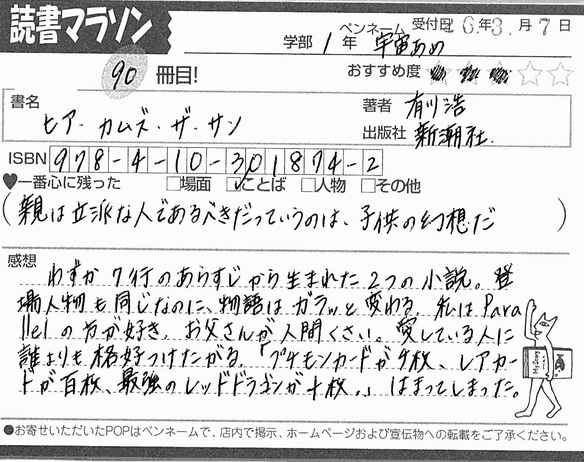 読書マラソン
ペンネーム 受付日 26年3.月7日
学部1年 宇宙あめ
90 冊目!
おすすめ度 ★★★☆☆
書名
ヒア・カムズ・ザ・サン
著者 有川浩
出版社 新潮社.
ISBN 978-4-10-301874-2
♥一番心に残った □場面 ☑ことば □人物 □その他
(親は立派な人であるべきだっていうのは、子供の幻想だ)
感想
わずか7行のあらすじから生まれた2つの小説。登
場人物も同じなのに、物語はガラッと変わる。私はPara
llelの方が好き。お父さんが人間くさい。愛している人に
誰よりも格好つけたがる。「プケモンカードが千枚、レアカー
ドが百枚、最強のレッドドラゴンが十枚。」はまってしまった。
●お寄せいただいたPOPはペンネームで、店内で掲示、ホームページおよび宣伝物への転載をご了承ください。